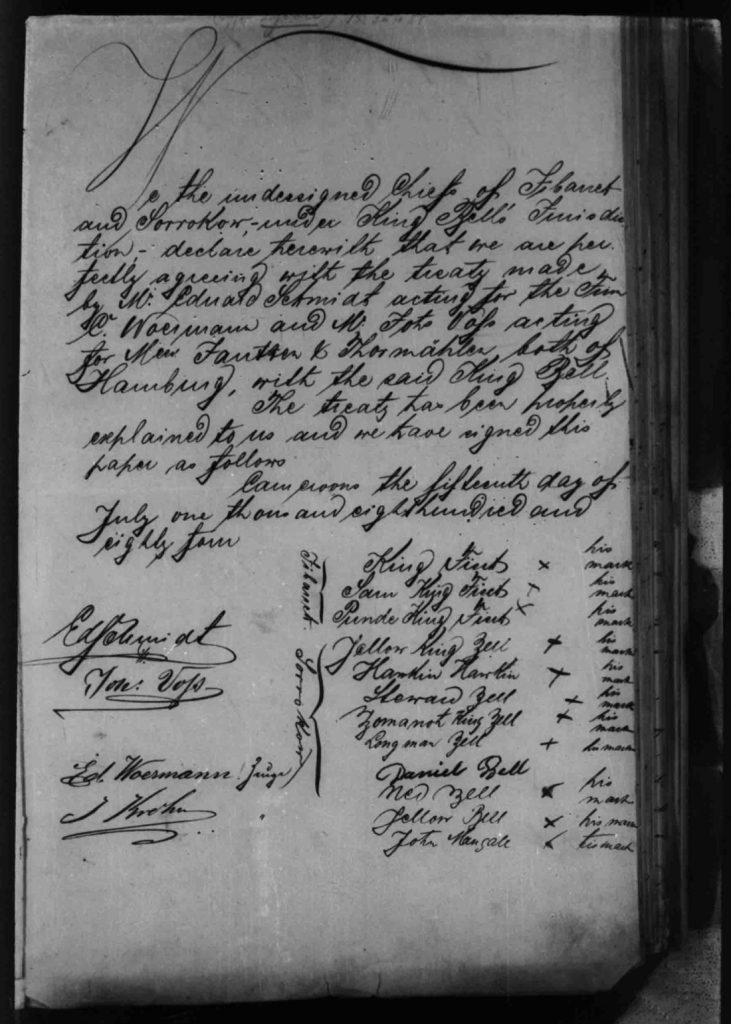 We the undersigned Chiefs of Tibanet
and Sorrokow, - under King Bell's Jurisdic
tion, - declare herewith that we are per-
fectly agreeing with the treaty made
by Mr. Eduard Schmidt acting for the Firm
C. Woermann and Mr. Johs Voss acting
for Mess Jantzen & Thormählen both of
Hamburg, with the said King Bell
The treaty has been properly
explained to us and we have signed this
paper as follows
Cameroons the fifteenth day of
July one thousand eighthundred and
eighty four
Tibanet.
King Fint x his mark
Sam King Fint + his mark
Punde King Fint x his mark
Sorrokow
Jellow King Bell + his mark
Hawkin Hawkin + his mark
Steward Bell + his mark
Bomanot King Bell + his mark
Long man Bell + his mark
Daniel Bell
Ned Bell x his mark
Jellow Bell x his mark
John x his mark
Ed Schmidt
Johs. Voss
Ed. Woermann (Zeuge)
J Krohn